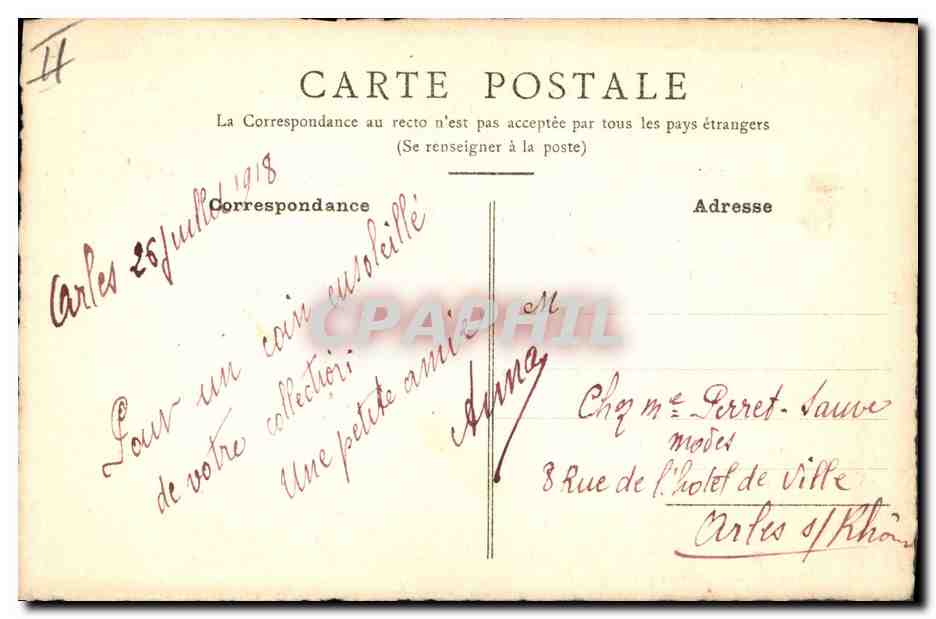 II
CARTE POSTALE
La Correspondance au recto n'est pas acceptée par tous les pays étrangers
(Se renseigner à la poste)
Correspondance
Arles 26 juillet 1918
Pour un coin ensoleillé
de votre collection
Une petite amie
Anna
CPAPHIL
Adresse
M
Chez me Perret-Sauve
modes
8 Rue de l'hotel de Ville
Arles s/ Rhône